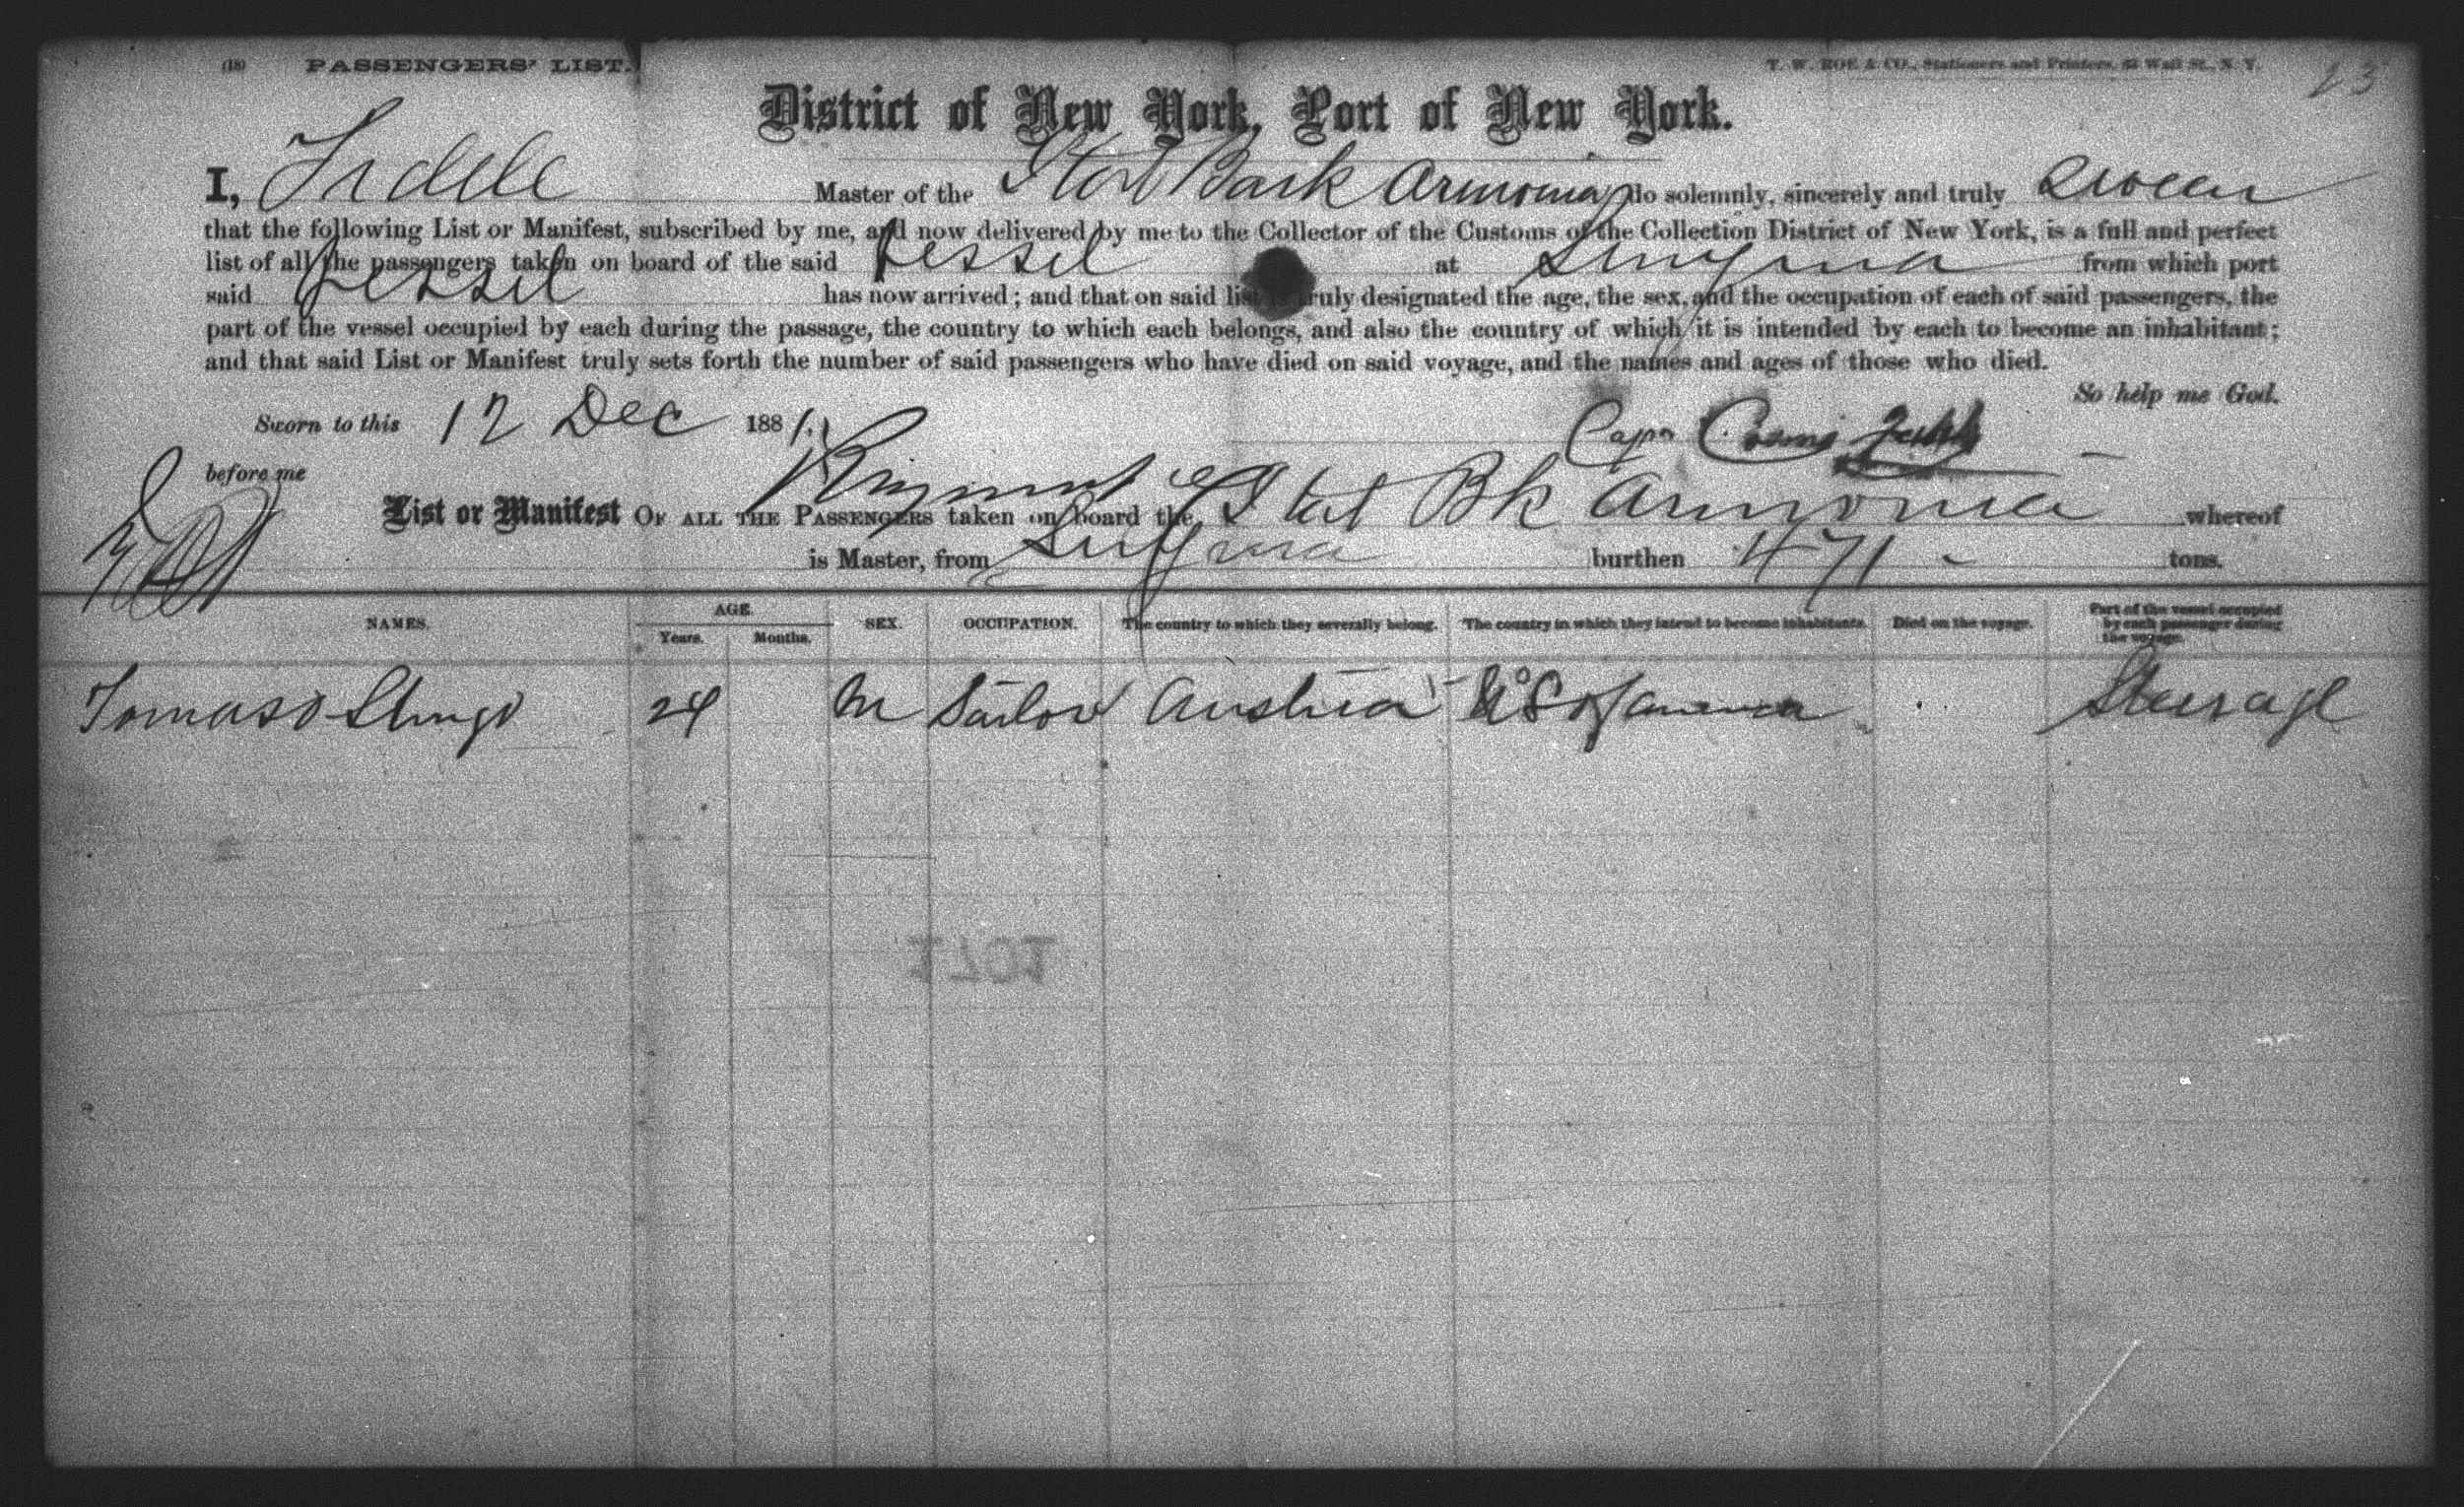 (18) PASSENGERS' LIST. T. W. ROE & CO., Stationers and Printers, Wall St., N. Y. 23
District of New York, Port of New York.
I, Master of the Bark Armonia do solemnly, sincerely and truly swear
that the following List or Manifest, subscribed by me, and now delivered by me to the Collector of the Customs of the Collection District of New York, is a full and perfect
list of all the passengers taken on board of the said Vessel at Smyrna from which port
said Vessel has now arrived; and that on said list is truly designated the age, the sex, and the occupation of each of said passengers, the
part of the vessel occupied by each during the passage, the country to which each belongs, and also the country of which it is intended by each to become an inhabitant;
and that said List or Manifest truly sets forth the number of said passengers who have died on said voyage, and the names and ages of those who died.
So help me God.
Sworn to this 12 Dec 1881. Cap
before me
List or Manifest OF ALL THE PASSENGERS taken on board the Ital Bk Armonia whereof
is Master, from Smyrna burthen 471 tons.
NAMES. AGE. Years. Months. SEX. OCCUPATION. The country to which they severally belong. The country in which they intend to become inhabitants. Died on the voyage. Part of the vessel occupied by each passenger during the voyage.
Tomaso 24 M Sailor Austria U S of America Steerage
1071